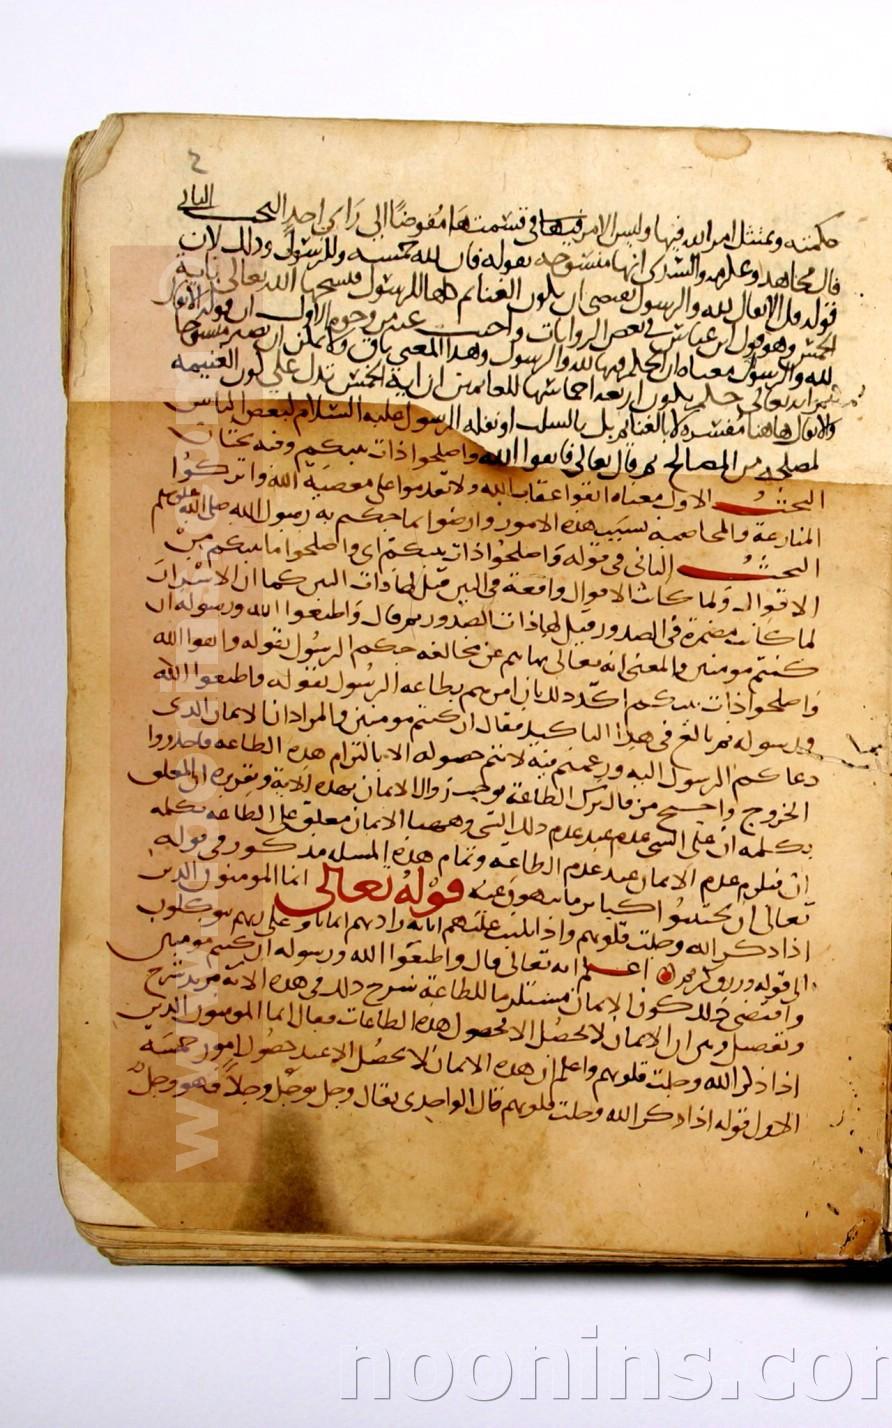 2
حكمته ويمتثل امر الله فيها وليس الامر فيها في قسمتها مفوضا الى راي احد البحث الثاني
قال مجاهد وعكرمه والسدي انها منسوخه بقوله فان لله خمسه وللرسول وذلك لان
قوله قل الانفال لله والرسول يقتضي ان يكون الغنائم كلها للرسول فنسخها الله تعالى باية
الخمس وهو قول ابن عباس في بعض الروايات واجيب عنه من وجوه الاول ان قوله قل الانفال
لله والرسول معناه ان الحكم فيها لله والرسول وهذا المعنى باق ولا يمكن ان يصير منسوخا
ثم انه تعالى حكم بكون اربعة اخماسها للغانمين ان اية الخمس تدل على كون الغنيمه
والانفال هاهنا مفسرة لا بالغنائم بل بالسلب او نفله الرسول عليه السلام لبعض الناس
لمصلحة من المصالح ثم قال تعالى فاتقوا الله واصلحوا ذات بينكم وفيه بحثان
البحث الاول معناه اتقوا عقاب الله ولا تقدموا على معصية الله واتركوا
المنازعة والمخاصمة بسبب هذه الامور وارضوا بما حكم به رسول الله صلى الله عليه وسلم
البحث الثاني في قوله واصلحوا ذات بينكم اي واصلحوا ما بينكم من
الاقوال ولما كانت الاقوال واقعة في البين قيل لها ذات البين كما ان الاسرار
لما كانت مضمرة في الصدور قيل لها ذات الصدور ثم قال واطيعوا الله ورسوله ان
كنتم مومنين والمعنى انه تعالى نهاهم عن مخالفه حكم الرسول بقوله واتقوا الله
واصلحوا ذات بينكم اكد ذلك بان امرهم بطاعه الرسول بقوله واطيعوا الله
ورسوله ثم بالغ في هذا التاكيد فقال ان كنتم مومنين والمراد ان الايمان الذي
دعاكم الرسول اليه ورغبتم فيه لا يتم حصوله الا بالتزام هذه الطاعه فاحذروا
الخروج واحتج من قال بترك الطاعة يوجب زوال الايمان بهذه الاية وتقريره ان المعلق
بكلمه ان على الشي عدم عند عدم ذلك الشي وههنا الايمان معلق على الطاعه بكلمه
ان فيلزم عدم الايمان عند عدم الطاعه وتمام هذه المسله مذكور في قوله
تعالى ان تجتنبوا كبائر ما تنهون عنه قوله تعالى انما المومنون الذين
اذا ذكر الله وجلت قلوبهم واذا تليت عليهم اياته زادتهم ايمانا وعلى ربهم يتوكلون
الى قوله ورزق كريم اعلم انه تعالى قال واطيعوا الله ورسوله ان كنتم مومنين
واقتضى ذلك كون الايمان مستلزما للطاعة شرح ذلك في هذه الاية مزيد شرح
وتفصيل وبين ان الايمان لا يحصل الا بحصول هذه الطاعات فقال انما المومنون الذين
اذا ذكر الله وجلت قلوبهم واعلم ان هذه الايمان لا يحصل الا عند حصول امور خمسه
الاول قوله اذا ذكر الله وجلت قلوبهم قال الواحدي يقال وجل يوجل وجلا فهو وجل
noonins.com